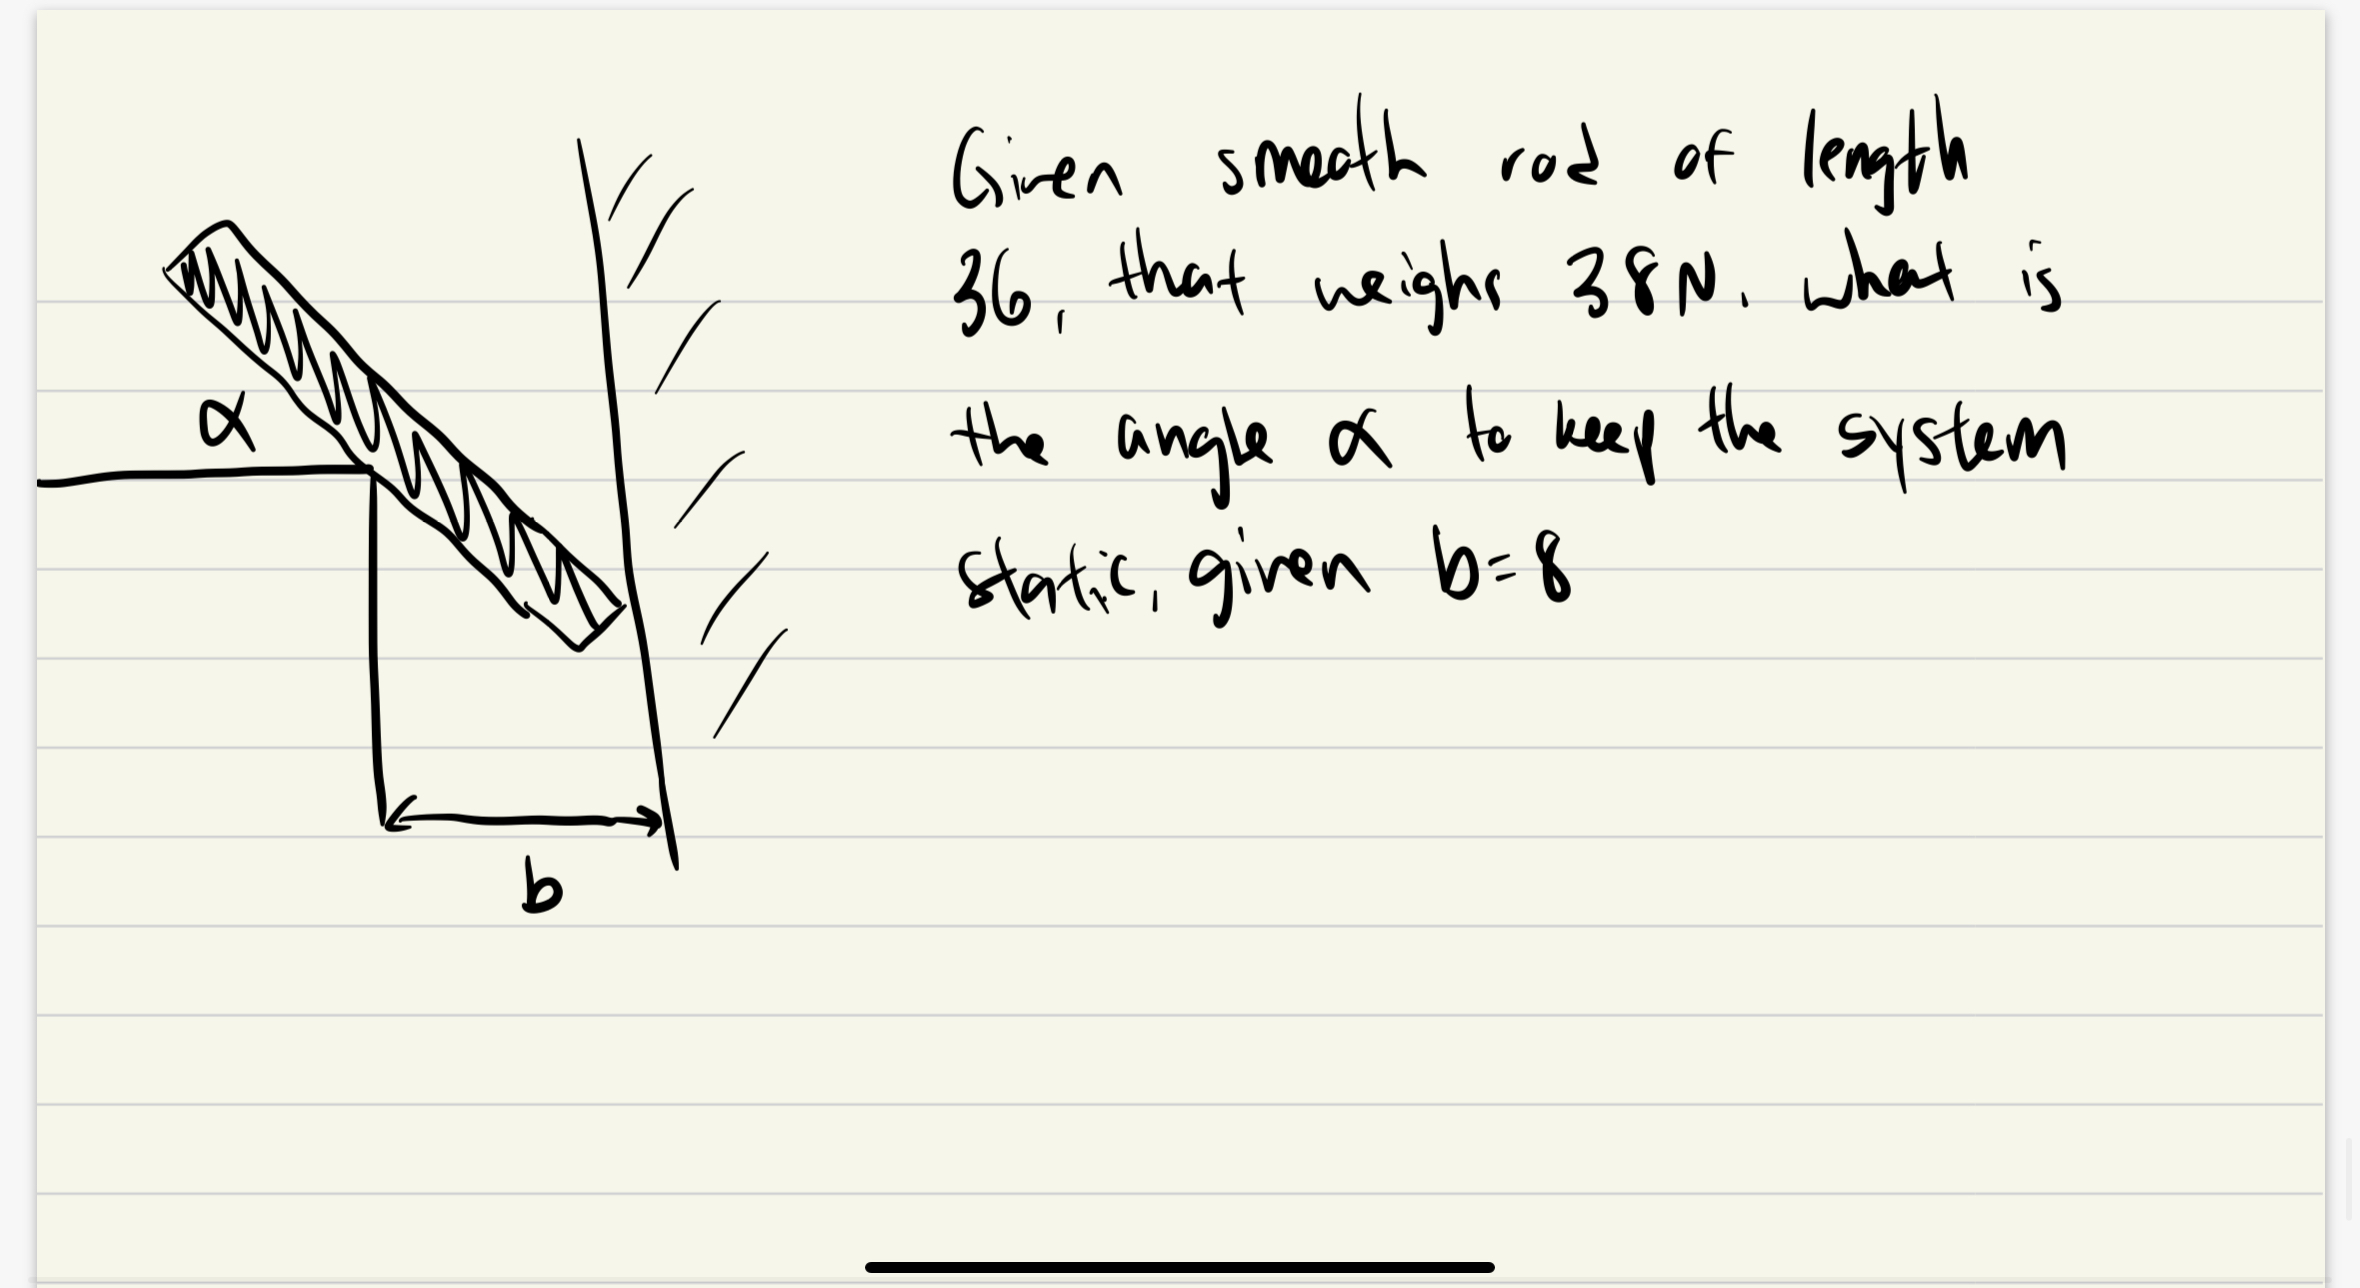 Given smooth rod of length
36, that weighs 38N. what is
α
the angle α to keep the system
static, given b=8
b